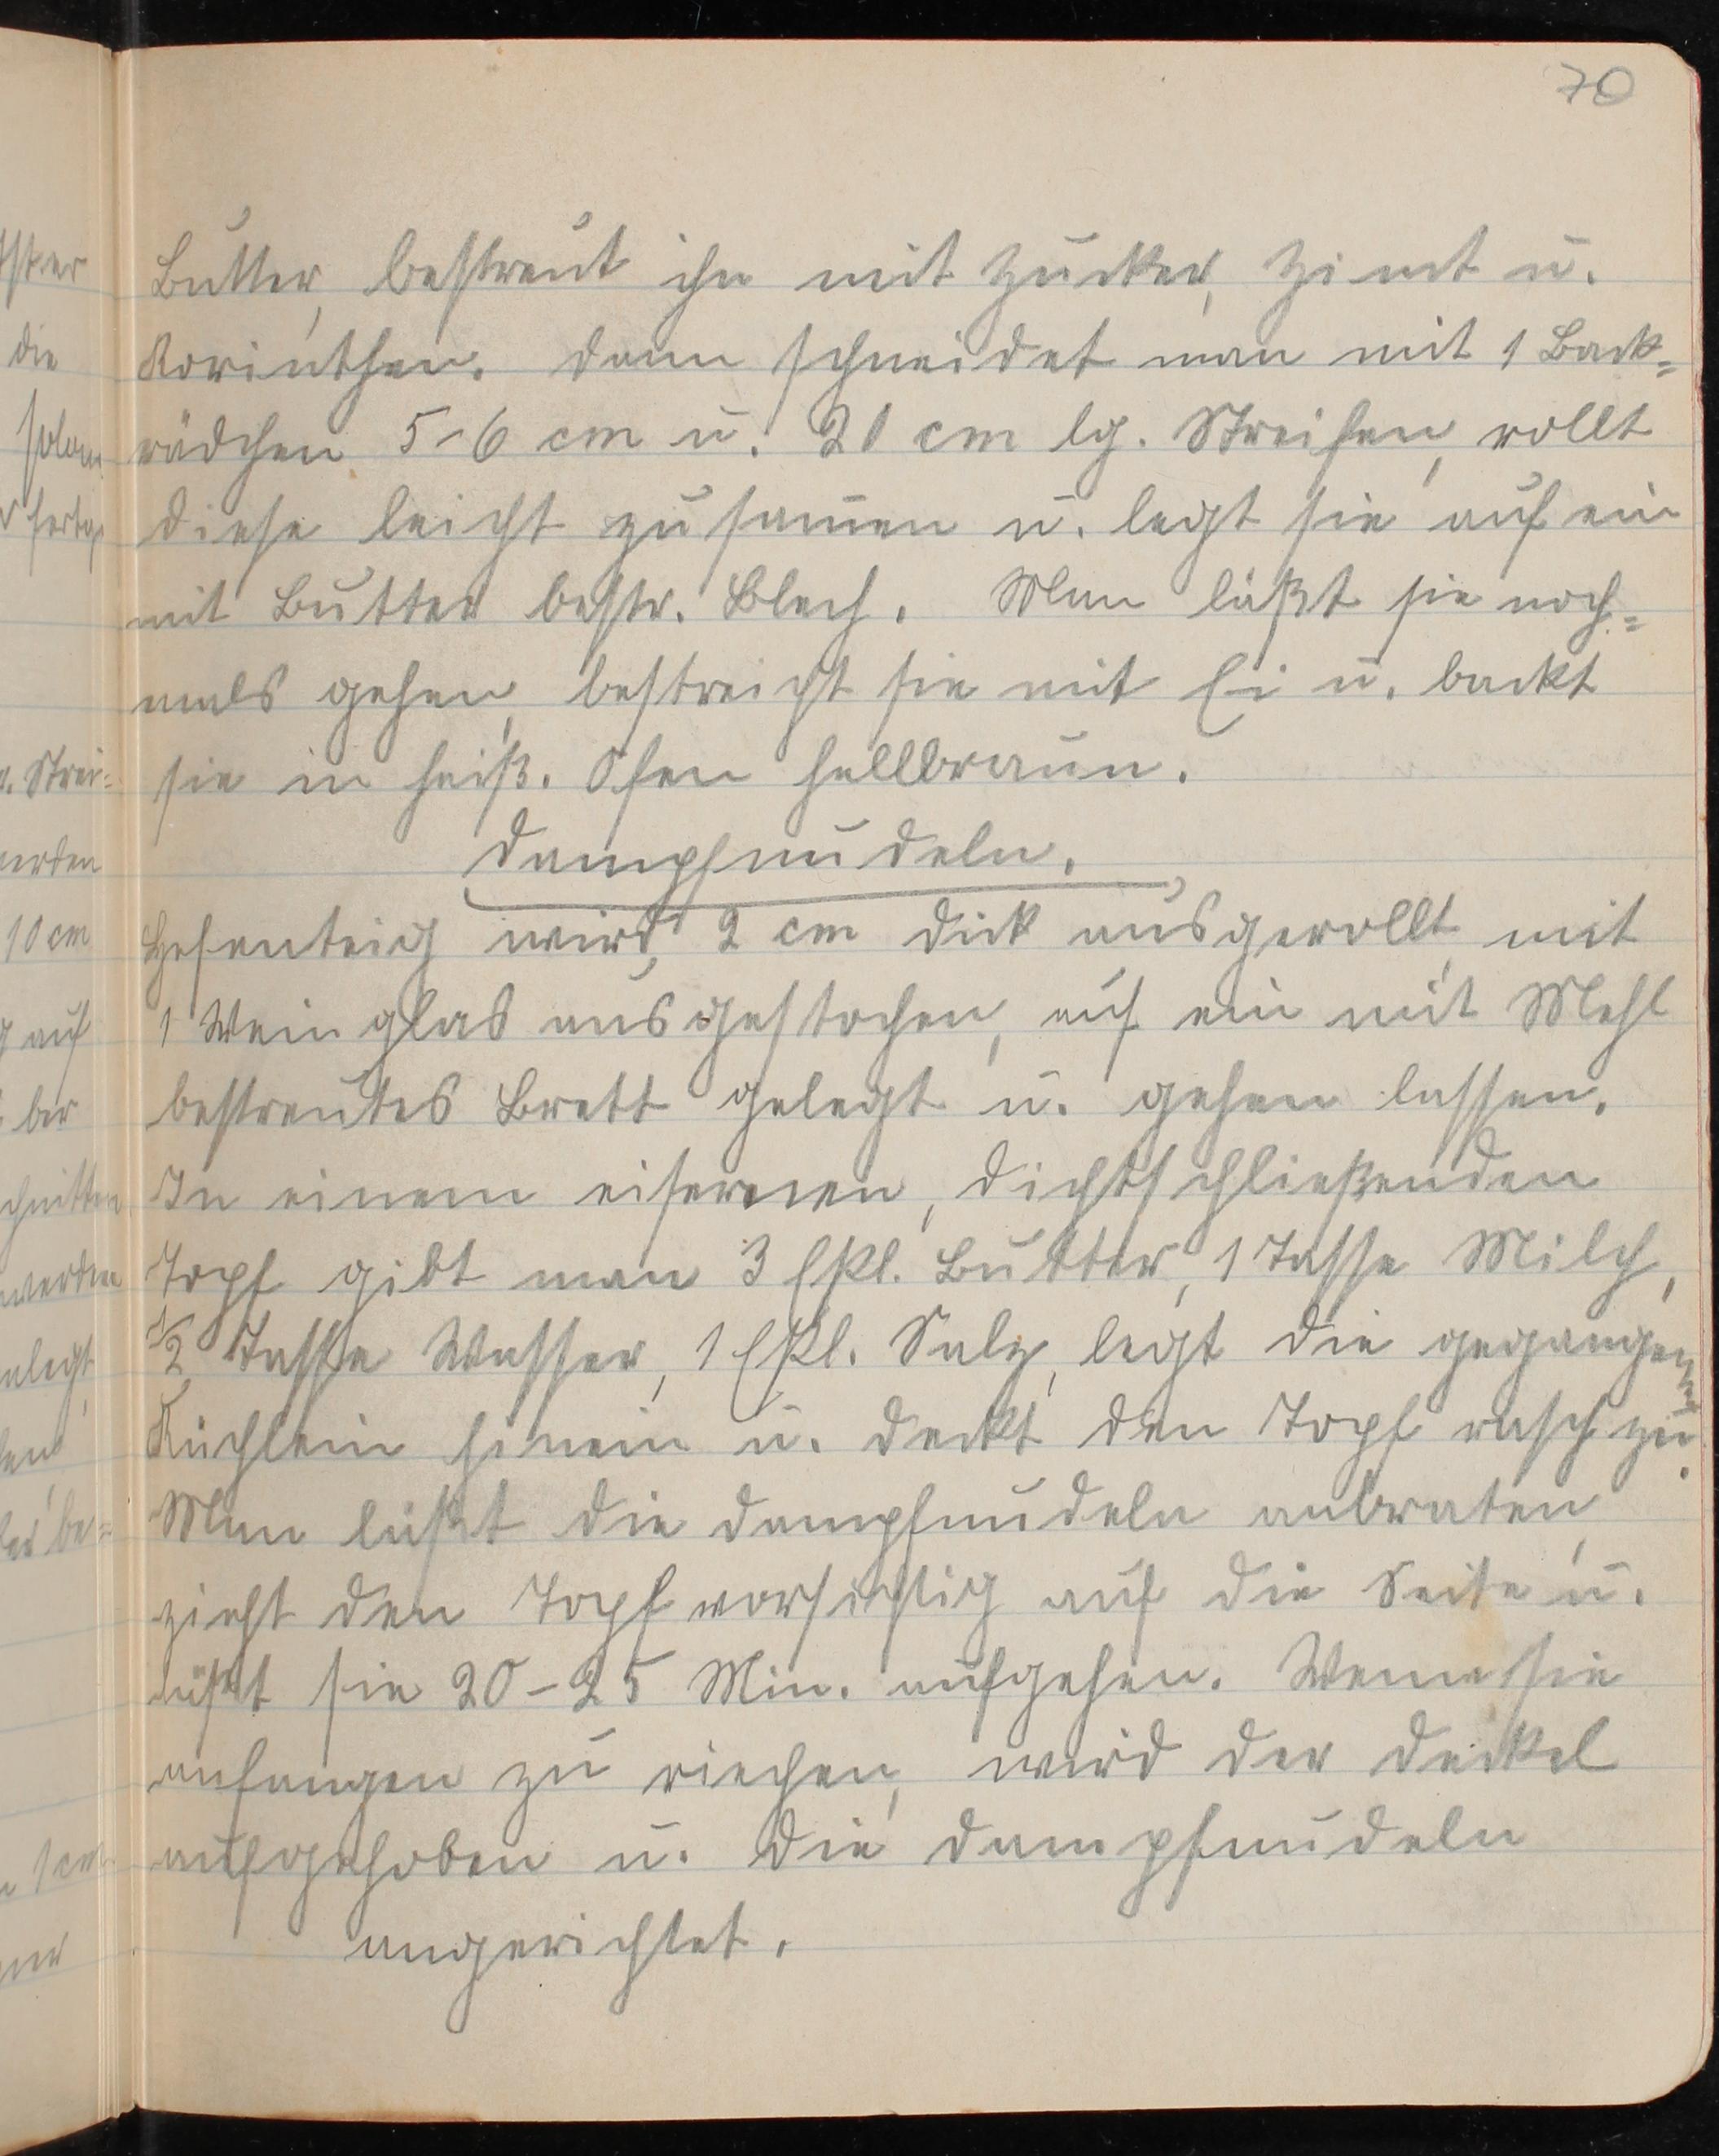 70
Butter, bestreut ihn mit Zucker, Zimt u.
Korinthen. Dann schneidet man mit 1 Back=
rädchen 5-6 cm u. 20 cm lg. Streifen, rollt
diese leicht zusam̄en u. legt sie auf ein
mit Butter bestr. Blech. Man läßt sie noch=
mals gehen, bestreicht sie mit Ei u. backt
sie in heiß. Ofen hellbraun.
Dampfnudeln.
Hefenteig wird 2 cm dick ausgerollt, mit
1 Weinglas ausgestochen, auf ein mit Mehl
bestreutes Brett gelegt u. gehen lassen.
In einem eisernen, dichtschließenden
Topf gibt man 3 Eßl. Butter, 1 Tasse Milch,
1/2 Tasse Wasser, 1 Eßl. Salz, legt die gegangenen
Küchlein hinein u. deckt den Topf rasch zu.
Man läßt die Dampfnudeln anbraten,
zieht den Topf vorsichtig auf die Seite u.
läßt sie 20-25 Min. aufgehen. Wenn sie
anfangen zu riechen, wird der Deckel
aufgehoben u. die Dampfnudeln
angerichtet.